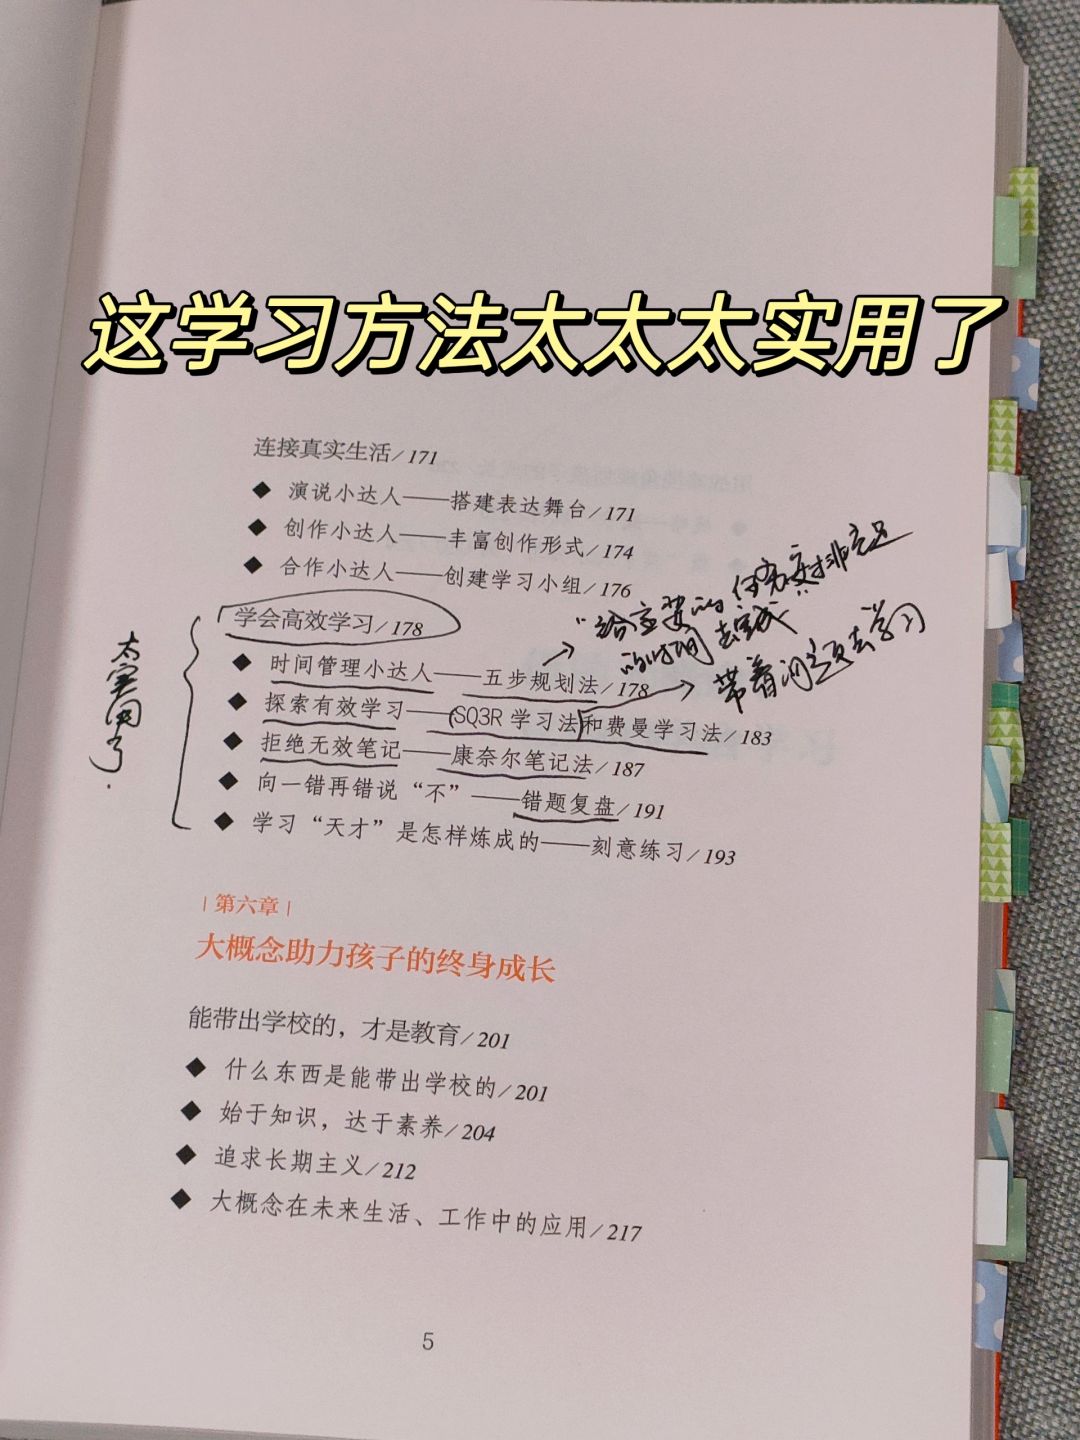 这学习方法太太太实用了
连接真实生活/171
◆ 演说小达人——搭建表达舞台/171
◆ 创作小达人——丰富创作形式/174
◆ 合作小达人——创建学习小组/176
学会高效学习/178
太实用了
→ "给重要的任务安排充足
的时间去完成"
◆ 时间管理小达人——五步规划法/178
→ 带着问题去学习
◆ 探索有效学习——(SQ3R 学习法)和费曼学习法/183
◆ 拒绝无效笔记——康奈尔笔记法/187
◆ 向一错再错说“不”——错题复盘/191
◆ 学习“天才”是怎样炼成的——刻意练习/193
|第六章|
大概念助力孩子的终身成长
能带出学校的，才是教育/201
◆ 什么东西是能带出学校的/201
◆ 始于知识，达于素养/204
◆ 追求长期主义/212
◆ 大概念在未来生活、工作中的应用/217
5